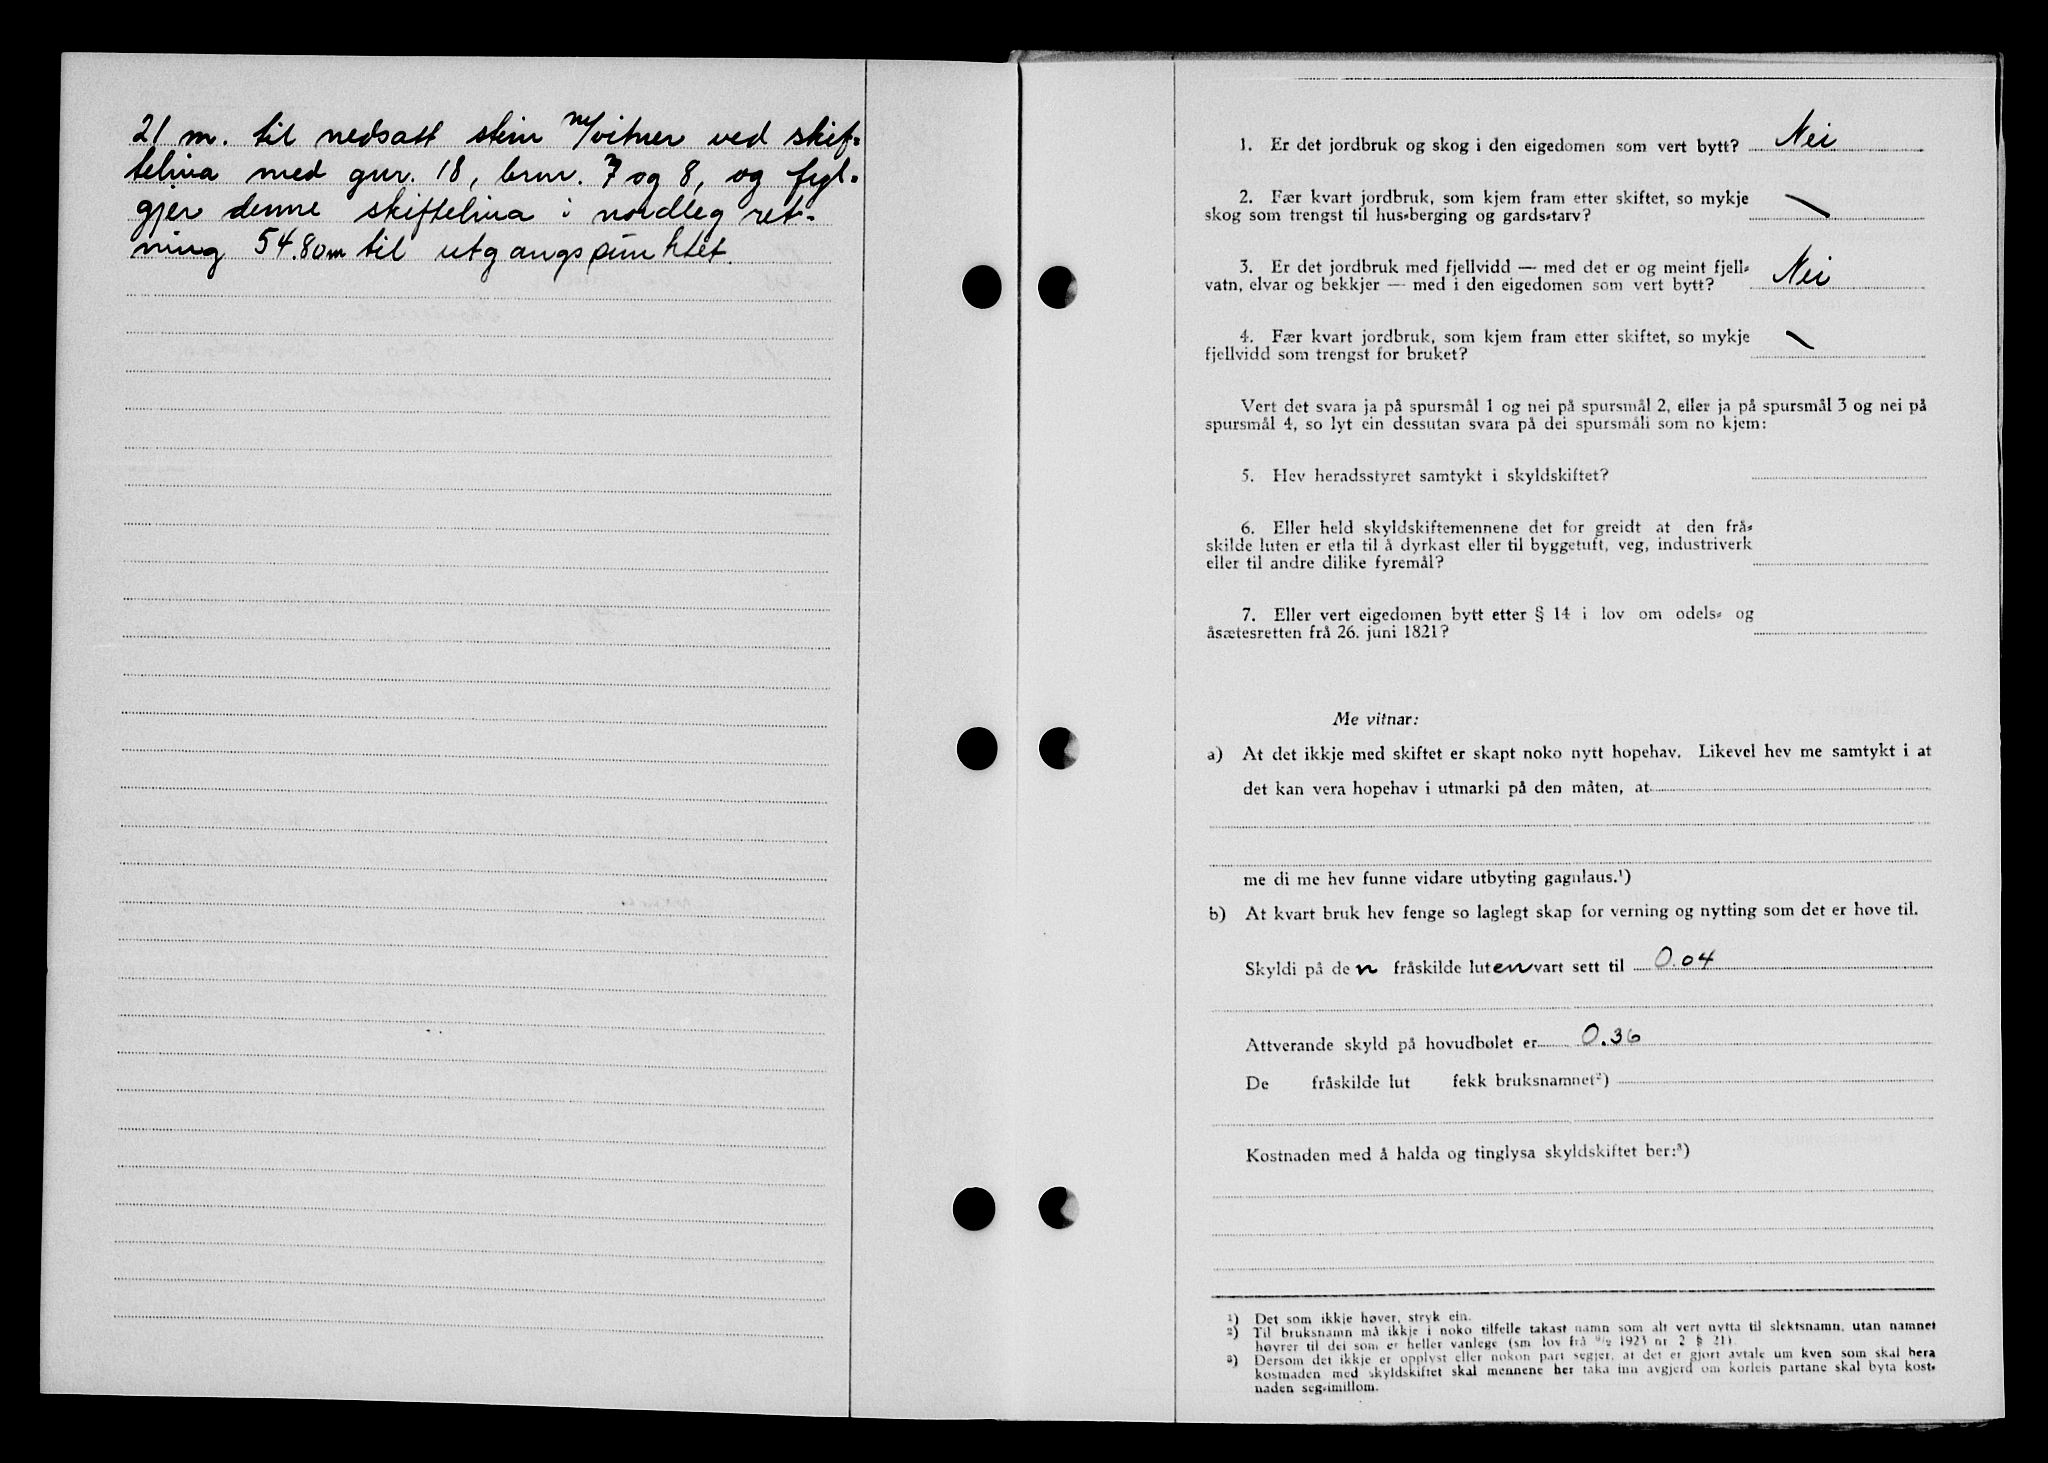 21 m. til nedsatt stein m/vitner ved skif-
telina med gnr. 18, brnr. 7 og 8, og fyl-
gjer denne skiftelina i nordleg ret-
ning 54.80m til utgangspunktet.
1. Er det jordbruk og skog i den eigedomen som vert bytt? Nei
2. Fær kvart jordbruk, som kjem fram etter skiftet, so mykje
skog som trengst til hus-berging og gards-tarv? \
3. Er det jordbruk med fjellvidd — med det er og meint fjell-
vatn, elvar og bekkjer — med i den eigedomen som vert bytt? Nei
4. Fær kvart jordbruk, som kjem fram etter skiftet, so mykje
fjellvidd som trengst for bruket? \
Vert det svara ja på spursmål 1 og nei på spursmål 2, eller ja på spursmål 3 og nei på
spursmål 4, so lyt ein dessutan svara på dei spursmåli som no kjem:
5. Hev heradsstyret samtykt i skyldskiftet?
6. Eller held skyldskiftemennene det for greidt at den frå-
skilde luten er etla til å dyrkast eller til byggetuft, veg, industriverk
eller til andre dilike fyremål?
7. Eller vert eigedomen bytt etter § 14 i lov om odels- og
åsætesretten frå 26. juni 1821?
Me vitnar:
a) At det ikkje med skiftet er skapt noko nytt hopehav. Likevel hev me samtykt i at
det kan vera hopehav i utmarki på den måten, at
me di me hev funne vidare utbyting gagnlaus.¹)
b) At kvart bruk hev fenge so laglegt skap for verning og nytting som det er høve til.
Skyldi på den fråskilde luten vart sett til 0.04
Attverande skyld på hovudbølet er 0.36
De fråskilde lut fekk bruksnamnet²)
Kostnaden med å halda og tinglysa skyldskiftet ber:³)
¹) Det som ikkje høver, stryk ein.
²) Til bruksnamn må ikkje i noko tilfelle takast namn som alt vert nytta til slektsnamn, utan namnet
høyrer til dei som er heller vanlege (sm lov frå 9/2 1923 nr 2 § 21).
³) Dersom det ikkje er opplyst eller nokon part segjer, at det er gjort avtale um kven som skal bera
kostnaden med skyldskiftet skal mennene her taka inn avgjerd om korleis partane skal byta kost-
naden seg-imillom.